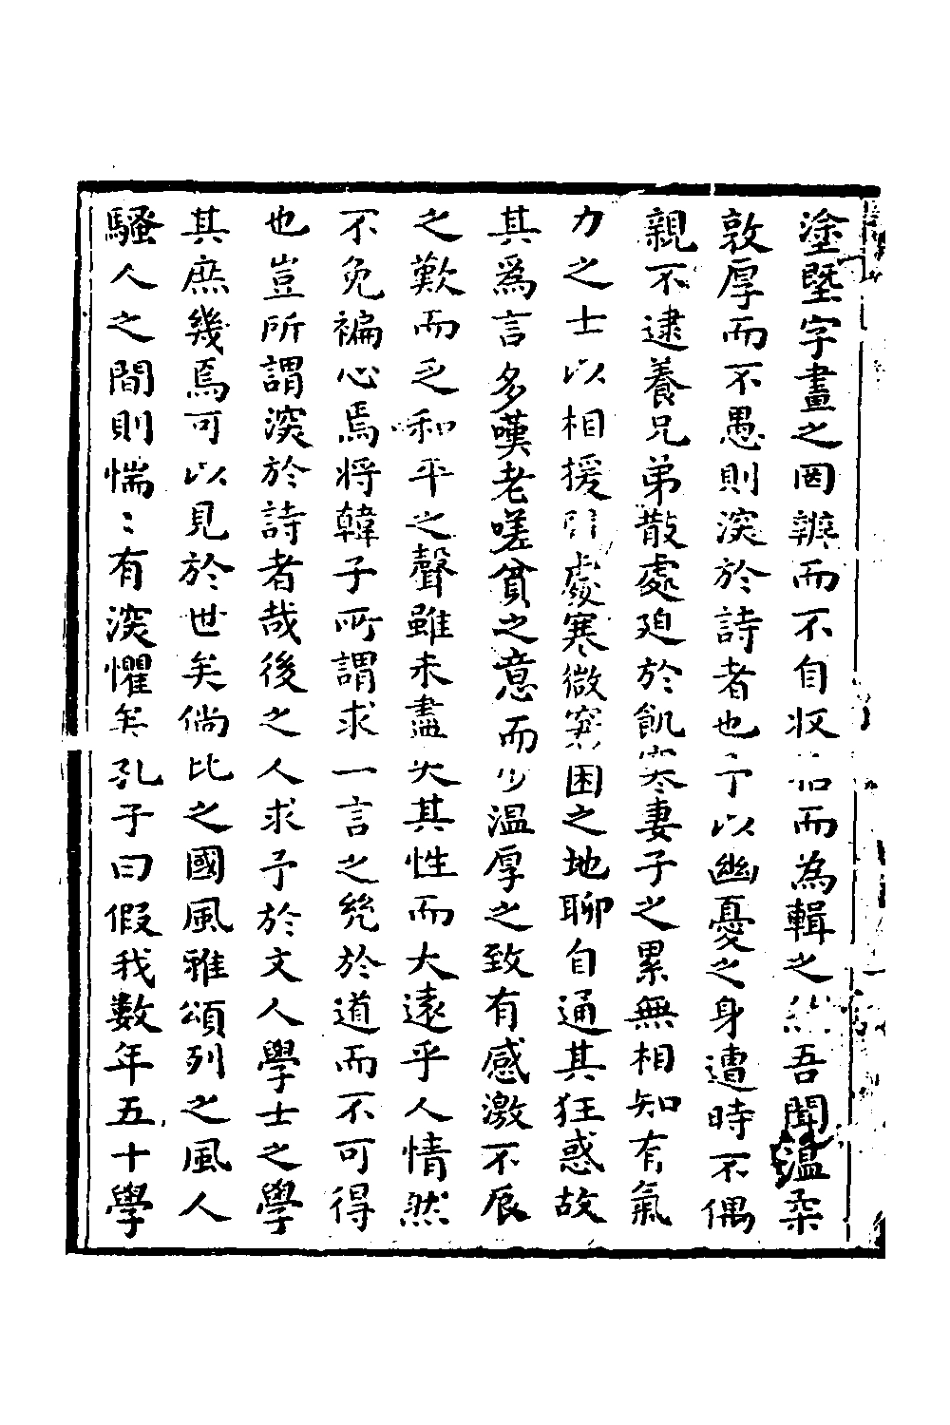 塗墍字畫之罔辨而不自收而為輯之吾聞溫柔
敦厚而不愚則深於詩者也予以幽憂之身遭時不偶
親不逮養兄弟散處廹於飢寒妻子之累無相知有氣
力之士以相援引處寒微窮困之地聊自通其狂惑故
其爲言多嘆老嗟貧之意而少溫厚之致有感激不辰
之歎而乏和平之聲雖未盡失其性而大遠乎人情然
不免褊心焉將韓子所謂求一言之幾於道而不可得
也豈所謂深於詩者哉後之人求予於文人學士之學
其庶幾焉可以見於世矣倘比之國風雅頌列之風人
騷人之間則惴〻有深懼矣孔子曰假我數年五十學